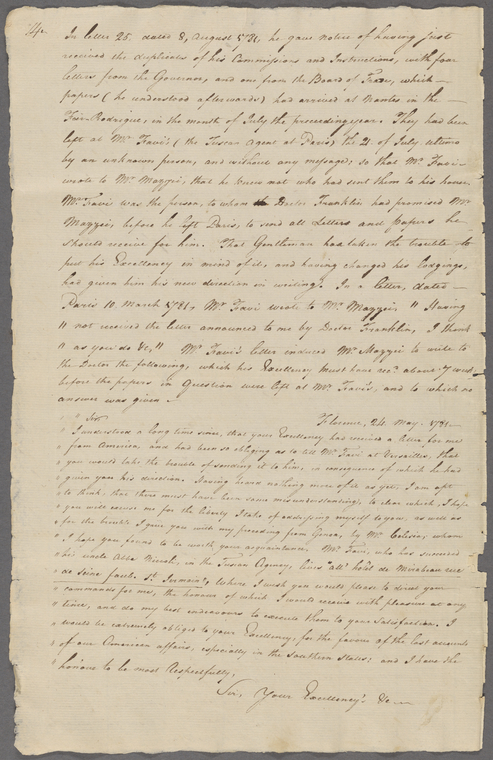 In letter 25. dated 8, August 1781, he gave notice of having just
received the duplicates of his Commissions and Instructions, with four
letters from the Governor, and one from the Board of Trade, which
papers (he understood afterwards) had arrived at Nantes in the
Fier-Rodrigue, in the month of July the preceeding year. They had been
left at Mr. Favi's (the Tuscan Agent at Paris) the 21. of July
by an unknown person, and without any message; so that Mr. Favi
wrote to Mr. Mazzei, that he knew not who had sent them to his house.
Mr. Favi was the person, to whom Doctor Franklin had promised Mr.
Mazzei, before he left Paris, to send all Letters and Papers he
should receive for him. That Gentleman had taken the trouble to
put his Excellency in mind of it, and having changed his lodgings,
had given him his new direction in writing. In a letter, dated
Paris 10. March 1781, Mr. Favi wrote to Mr. Mazzei, " Having
" not received the letter announced to me by Doctor Franklin, I think
" as you do &c, " Mr. Favi's letter induced Mr. Mazzei to write to
the Doctor the following, which his Excellency must have recd. about 7 weeks
before the papers in Question were left at Mr. Favi's, and to which no
answer was given.
" Sir Florence, 24. May. 1781.
" I understood a long time since, that your Excellency had received a letter for me
" from America, and had been so obliging as to tell Mr. Favi at Versailles, that
" you would take the trouble of sending it to him, in consequence of which he had
" given you his direction. Having heard nothing more of it as yet, I am apt
" to think, that there must have been some misunderstanding, to clear which, I hope
" you will excuse me for the liberty I take of addressing myself to you, as well as
" for the trouble I gave you with my preceding from Genoa, by Mr. Celesia, whom
" I hope you found to be worth your acquaintance. Mr. Favi, who has succeeded
" his uncle Abbé Niccoli, in the Tuscan Agency, lives "à l' hôtel de Mirabeau rue
de Seine faub. St. Germain", where I wish you would please to send your
" commands for me, the honour of which I would receive with pleasure at any
" time, and do my best endeavours to execute them to your satisfaction. I
" would be extremely obliged to your Excellency, for the favour of the last accounts
" of our American affairs, especially in the southern States; and I have the
" honour to be most Respectfully,
Sir, Your Excellency's &c